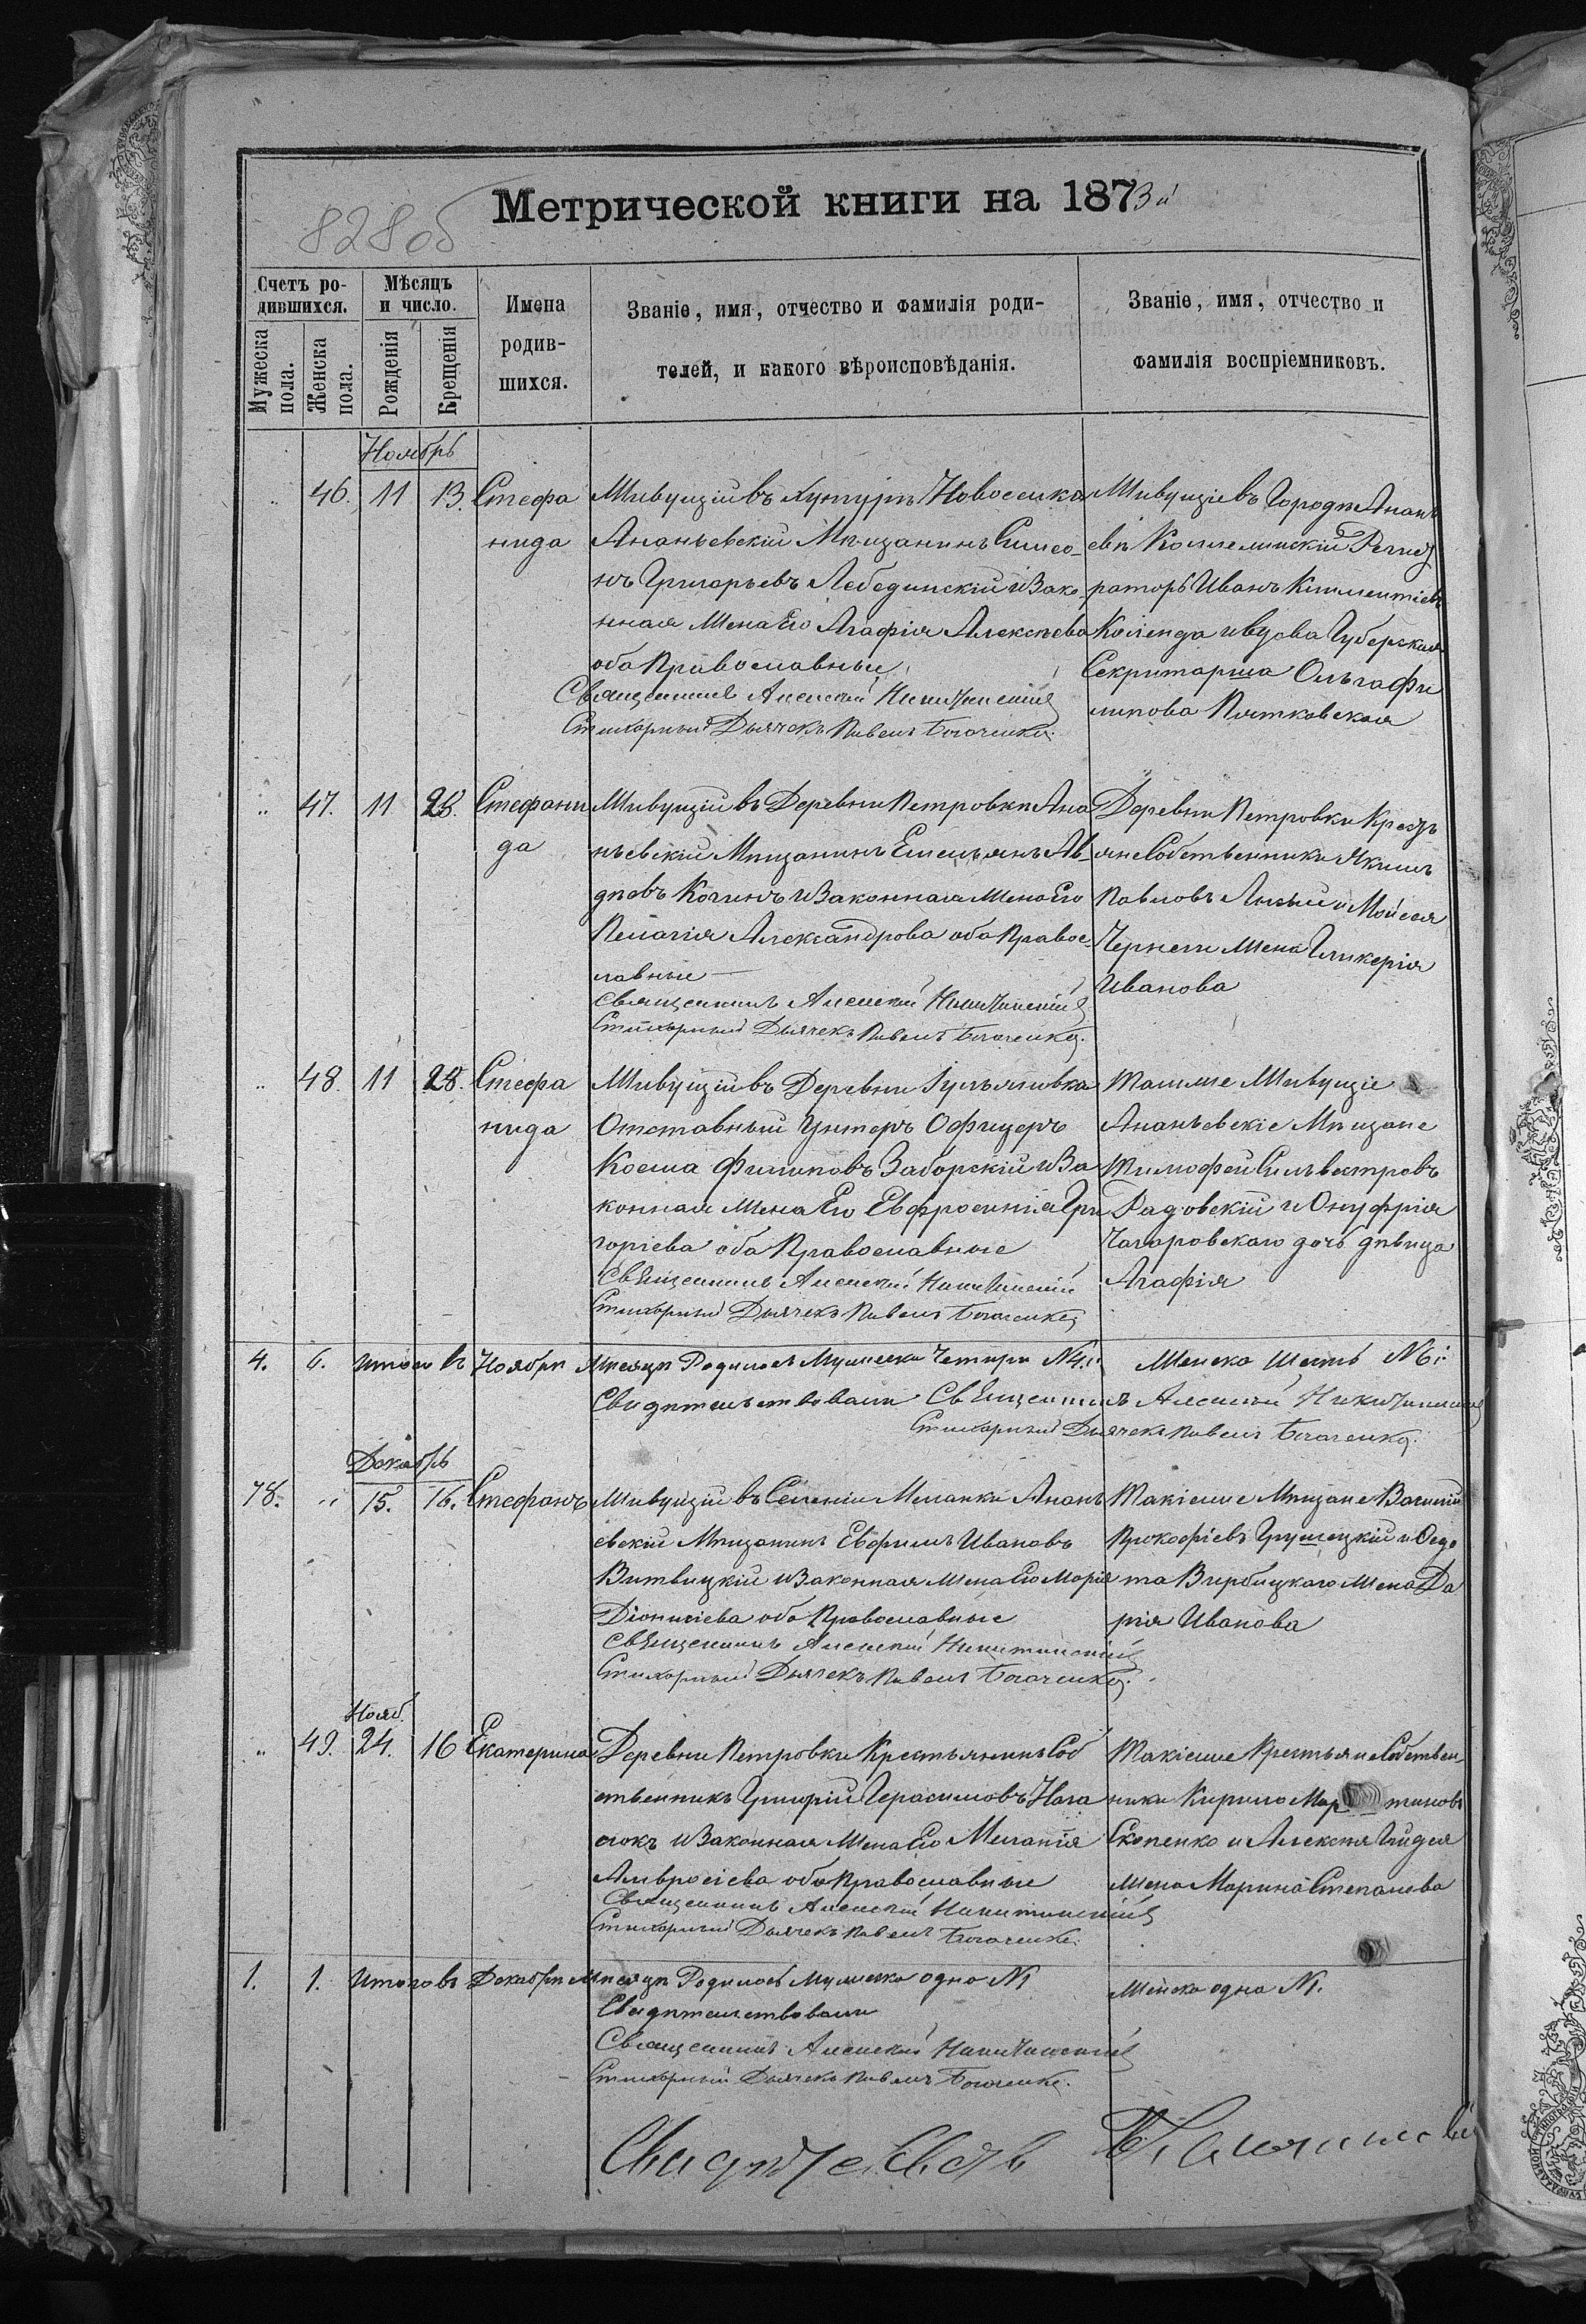 828 об
Метрической книги на 1873й
Счетъ ро-
дившихся.
Мѣсяцъ
и число.
Имена
родив-
шихся.
Званіе, имя, отчество и фамилія роди-
телей, и какого вѣроисповѣданія.
Званіе, имя, отчество и
фамилія воспріемниковъ.
Мужеска
пола.
Женска
пола.
Рожденія
Крещенія
Ноябрь
„ 46. 11 13. Стефа
нида
Живущій въ Хуторѣ Новоселка
Ананьевскій Мѣщанинъ Симео-
нъ Григорьевъ Лебединскій и Зако
нная Жена Его Агафія Алексѣева
оба Православные
Священникъ Алексѣй Никитинскій
Стихарный Дьячекъ Павелъ Богаченко.
Живущіе въ Городѣ Анан
евѣ Коллежскій Регис
раторъ Иванъ Климентіевъ
Коленда и вдова Губерская
Секритарша Ольга Фи
липова Пятковская
„ 47. 11 28. Стефани
да
Живущій въ Деревни Петровки Ана
ньевскій Мѣщанинъ Емельянъ Ав-
дѣевъ Кочинъ и Законная Жена Его
Пелагія Александрова оба Правос-
лавные
Священникъ Алексѣй Никитинскій
Стихарный Дьячекъ Павелъ Богаченко.
Деревни Петровки Крестъ
яне Собственники Якимъ
Павловъ Лысый и Мойсея
Чернеги Жена Гликерія
Иванова
„ 48. 11 28. Стефа
нида
Живущій въ Деревни Гульяновка
Отставный Унтеръ Офицеръ
Косма Филиповъ Заборскій и За
конная Жена Его Евфросинія Гри
горіева оба Православные
Священникъ Алексѣй Никитинскій
Стихарный Дьячекъ Павелъ Богаченко
Тамже Живущіе
Ананьевскіе Мѣщане
Тимофей Сильвестровъ
Радовскій и Онуфрія
дочь дѣвица
Агафія
4. 6. Итого въ Ноябрѣ Мѣсяцѣ Родилось Мужеска Четыри №4. Женска Шесть №6.
Свидѣтельствовали Священникъ Алексѣй Никитинскій
Стихарный Дьячекъ Павелъ Богаченко.
Декабрь
78. „ 15. 16. Стефанъ
Живущій въ Селеніи Желанки Анань
евскій Мѣщанинъ Евфимъ Ивановъ
Витвицкій и Законная Жена Его Марія
Діонисіева оба Православные
Священникъ Алексѣй Никитинскій
Стихарный Дьячекъ Павелъ Богаченко.
Такіеже Мѣщане Василій
Прокофіевъ Грушецкій и Федо
та Вирбицкаго Жена Да
рія Иванова
Нояб.
„ 49. 24. 16 Екатерина
Деревни Петровки Крестьянинъ Соб
ственникъ Григорій Герасимовъ Нага
локъ и Законная Жена Его Меланія
Амвросіева оба Православные
Священникъ Алексѣй Никитинскій
Стихарный Дьячекъ Павелъ Богаченко.
Такіеже Крестьяне Собствен
ники Кирило Мар тиновъ
Скопенко и Алексѣя
Жена Марина Степанова
1. 1. Итого въ Декабрѣ Мѣсяцѣ Родилось Мужеска одно №1 Женска одна №1.
Свидѣтельствовали
Священникъ Алексѣй Никитинскій
Стихарный Дьячекъ Павелъ Богаченко.